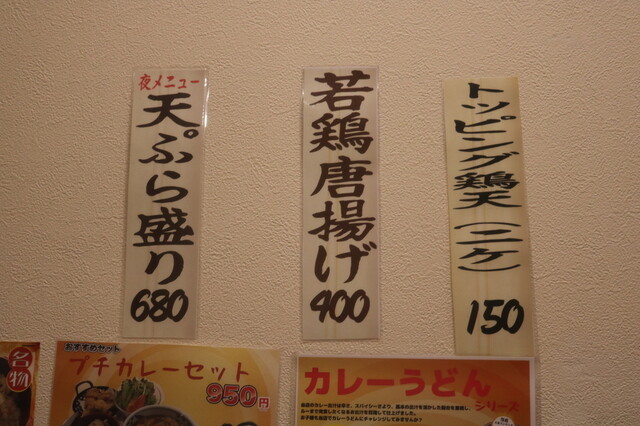 夜メニュー
天ぷら盛り
680
若鶏唐揚げ
400
トッピング鶏天(二ケ)
150
名物
おすすめセット
プチカレーセット
950円
カレーうどん
シリーズ